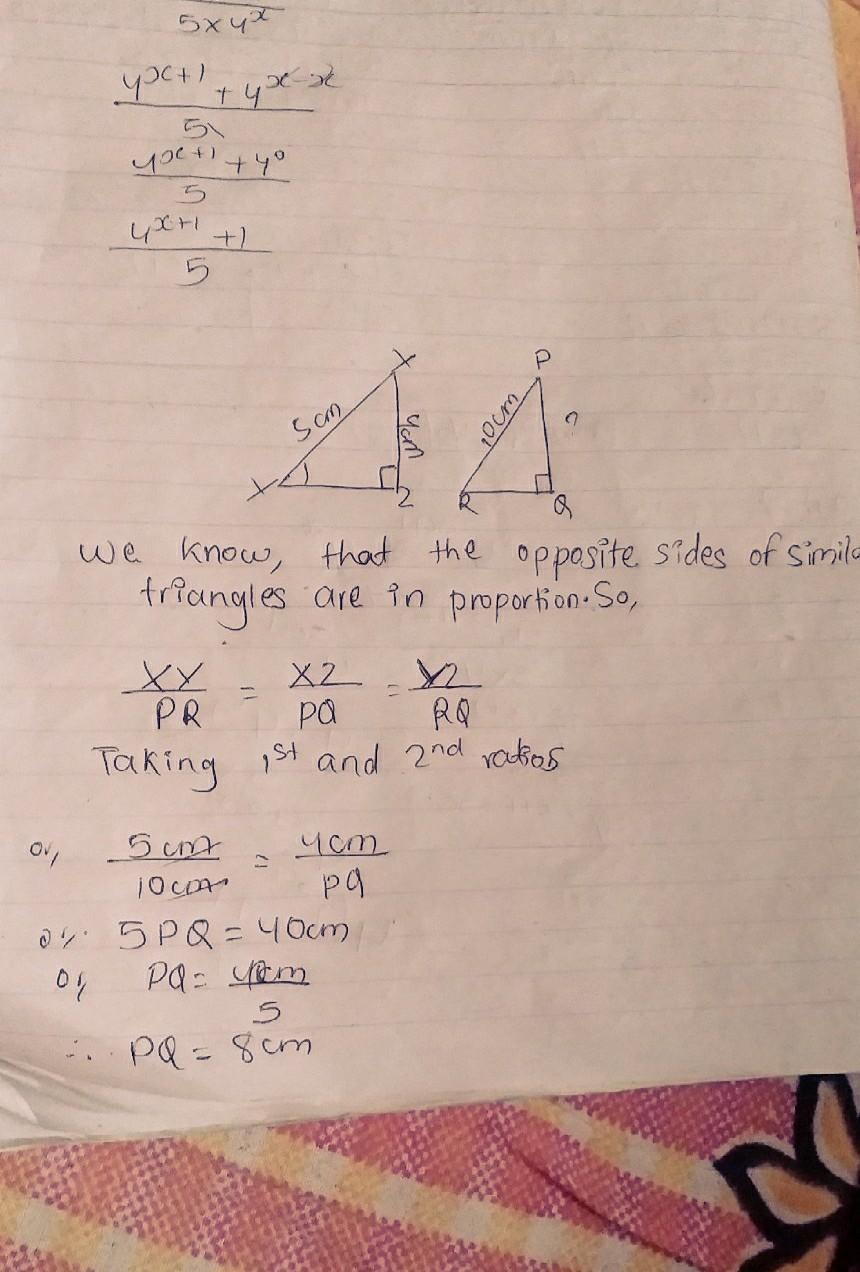 5×4^x
4^{x+1} + 4^{x-x}
5
4^{x+1} + 4^0
5
4^{x+1} + 1
5
X P
5cm 4cm 10cm ?
Y Z R Q
We know, that the opposite sides of simila
triangles are in proportion. So,
XY/PR = XZ/PQ = YZ/RQ
Taking 1st and 2nd ratios
or, 5cm/10cm = 4cm/PQ
or, 5PQ = 40cm
or, PQ = 40cm/5
∴ PQ = 8cm